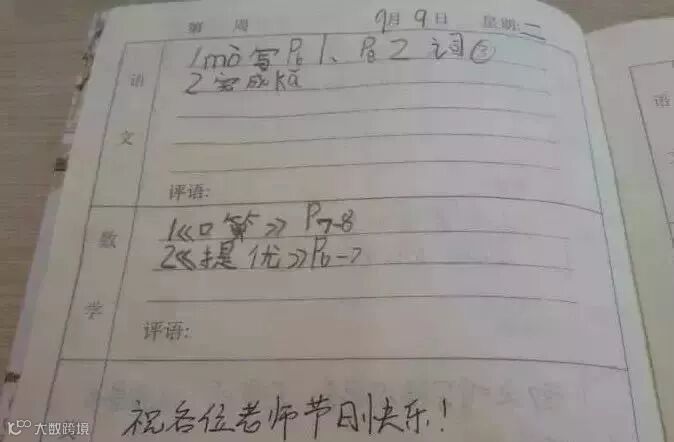 第 周 9月9日 星期:二
语文
1mò写P61、P82词③
2完成kǎ
评语:
数学
1《口算》P7-8
2《提优》P6-7
评语:
祝各位老师节日快乐!
语
大数跨境